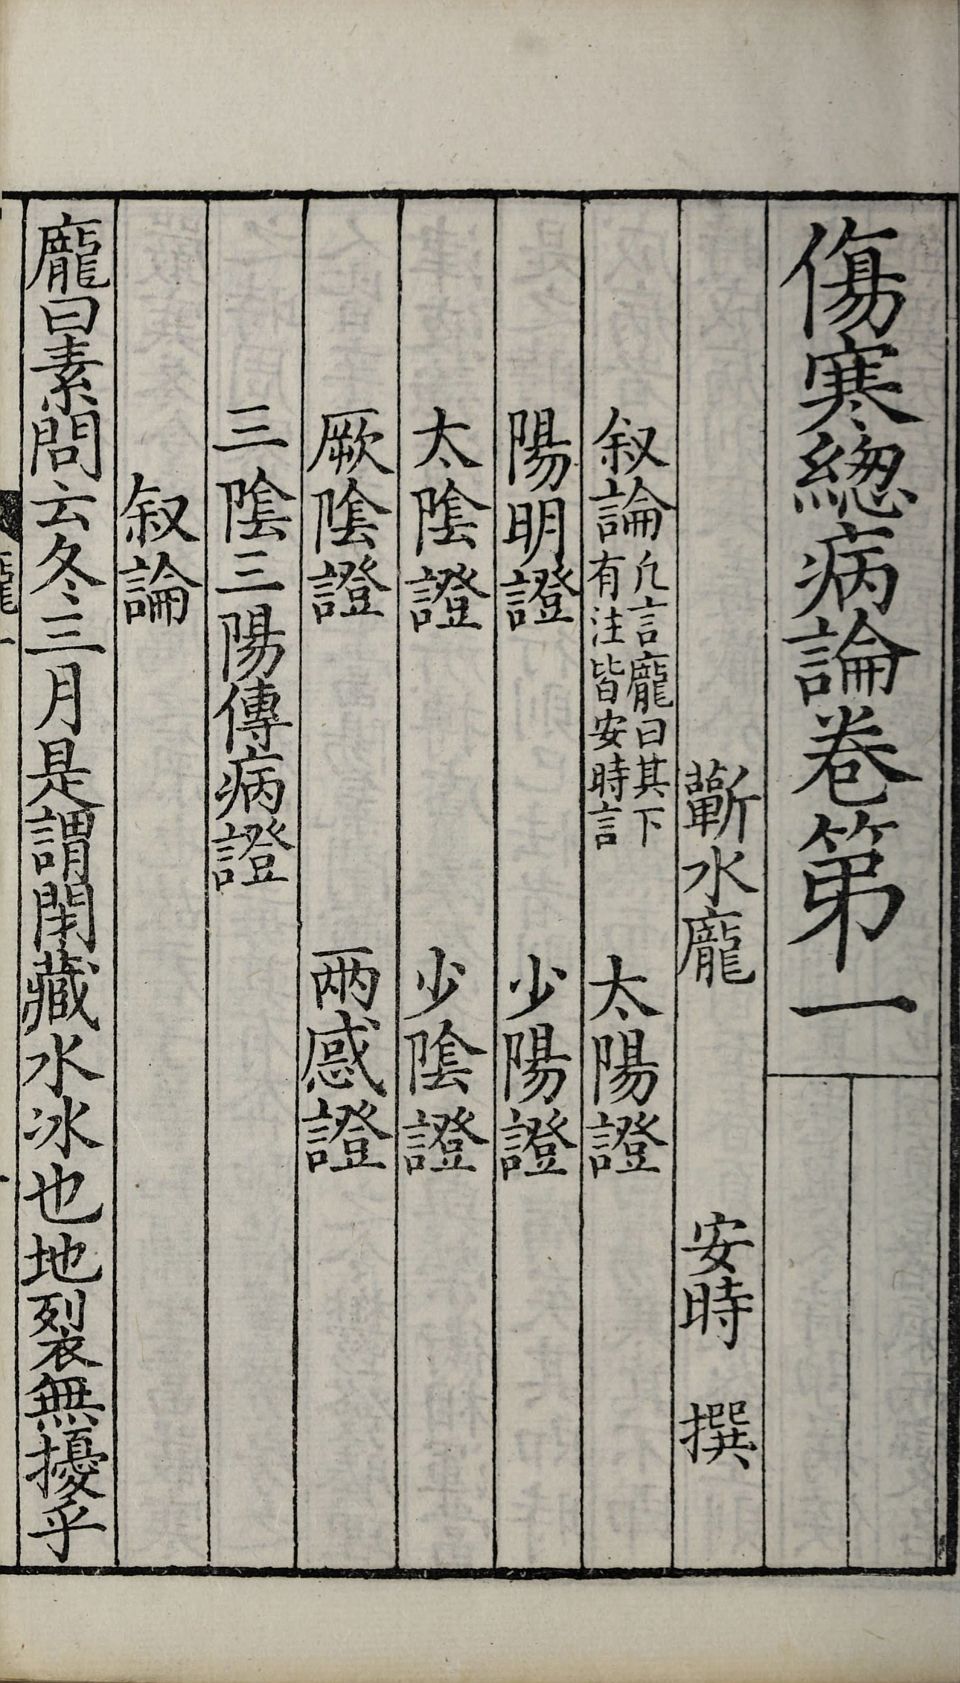 傷寒緫病論卷第一
蘄水龐　安時　撰
叙論 凢言龐曰其下
有注皆安時言 太陽證
陽明證　少陽證
太陰證　少陰證
厥陰證　兩感證
三陰三陽傳病證
叙論
龐曰素問云冬三月是謂閉藏水冰也地裂無擾乎
龐一